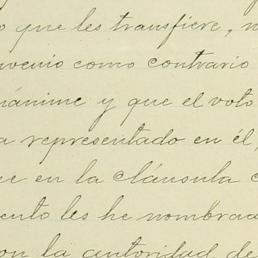 o que les transfiere, n
nvenio como contrario
nánime y que el voto
a representado en él,
ce en la cláusula c
ento les he nombrad
on la autoridad de